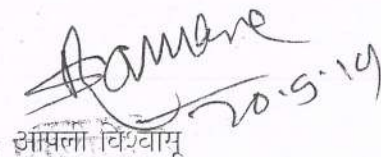 20.5.19
आपला विश्वासू